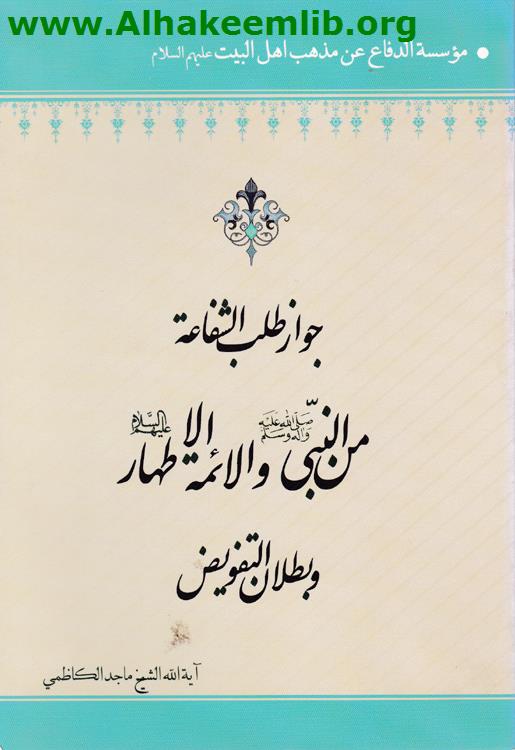 www.Alhakeemlib.org
مؤسسة الدفاع عن مذهب اهل البيت عليهم السلام
جواز طلب الشفاعة
من النبّي صلى الله عليه وآله وسلم والائمة الاطهار عليهم السلام
وبطلان التفويض
آية الله الشيخ ماجد الكاظمي